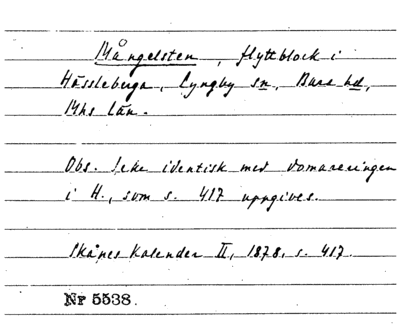 Mångelsten, flyttblock i
Hässleberga, Lyngby sn, Bara hd,
Mhs län.
Obs. Icke identisk med domareringen
i H., som s. 417 uppgives.
Skånes Kalender II, 1878, s. 417.
Nr 5538.